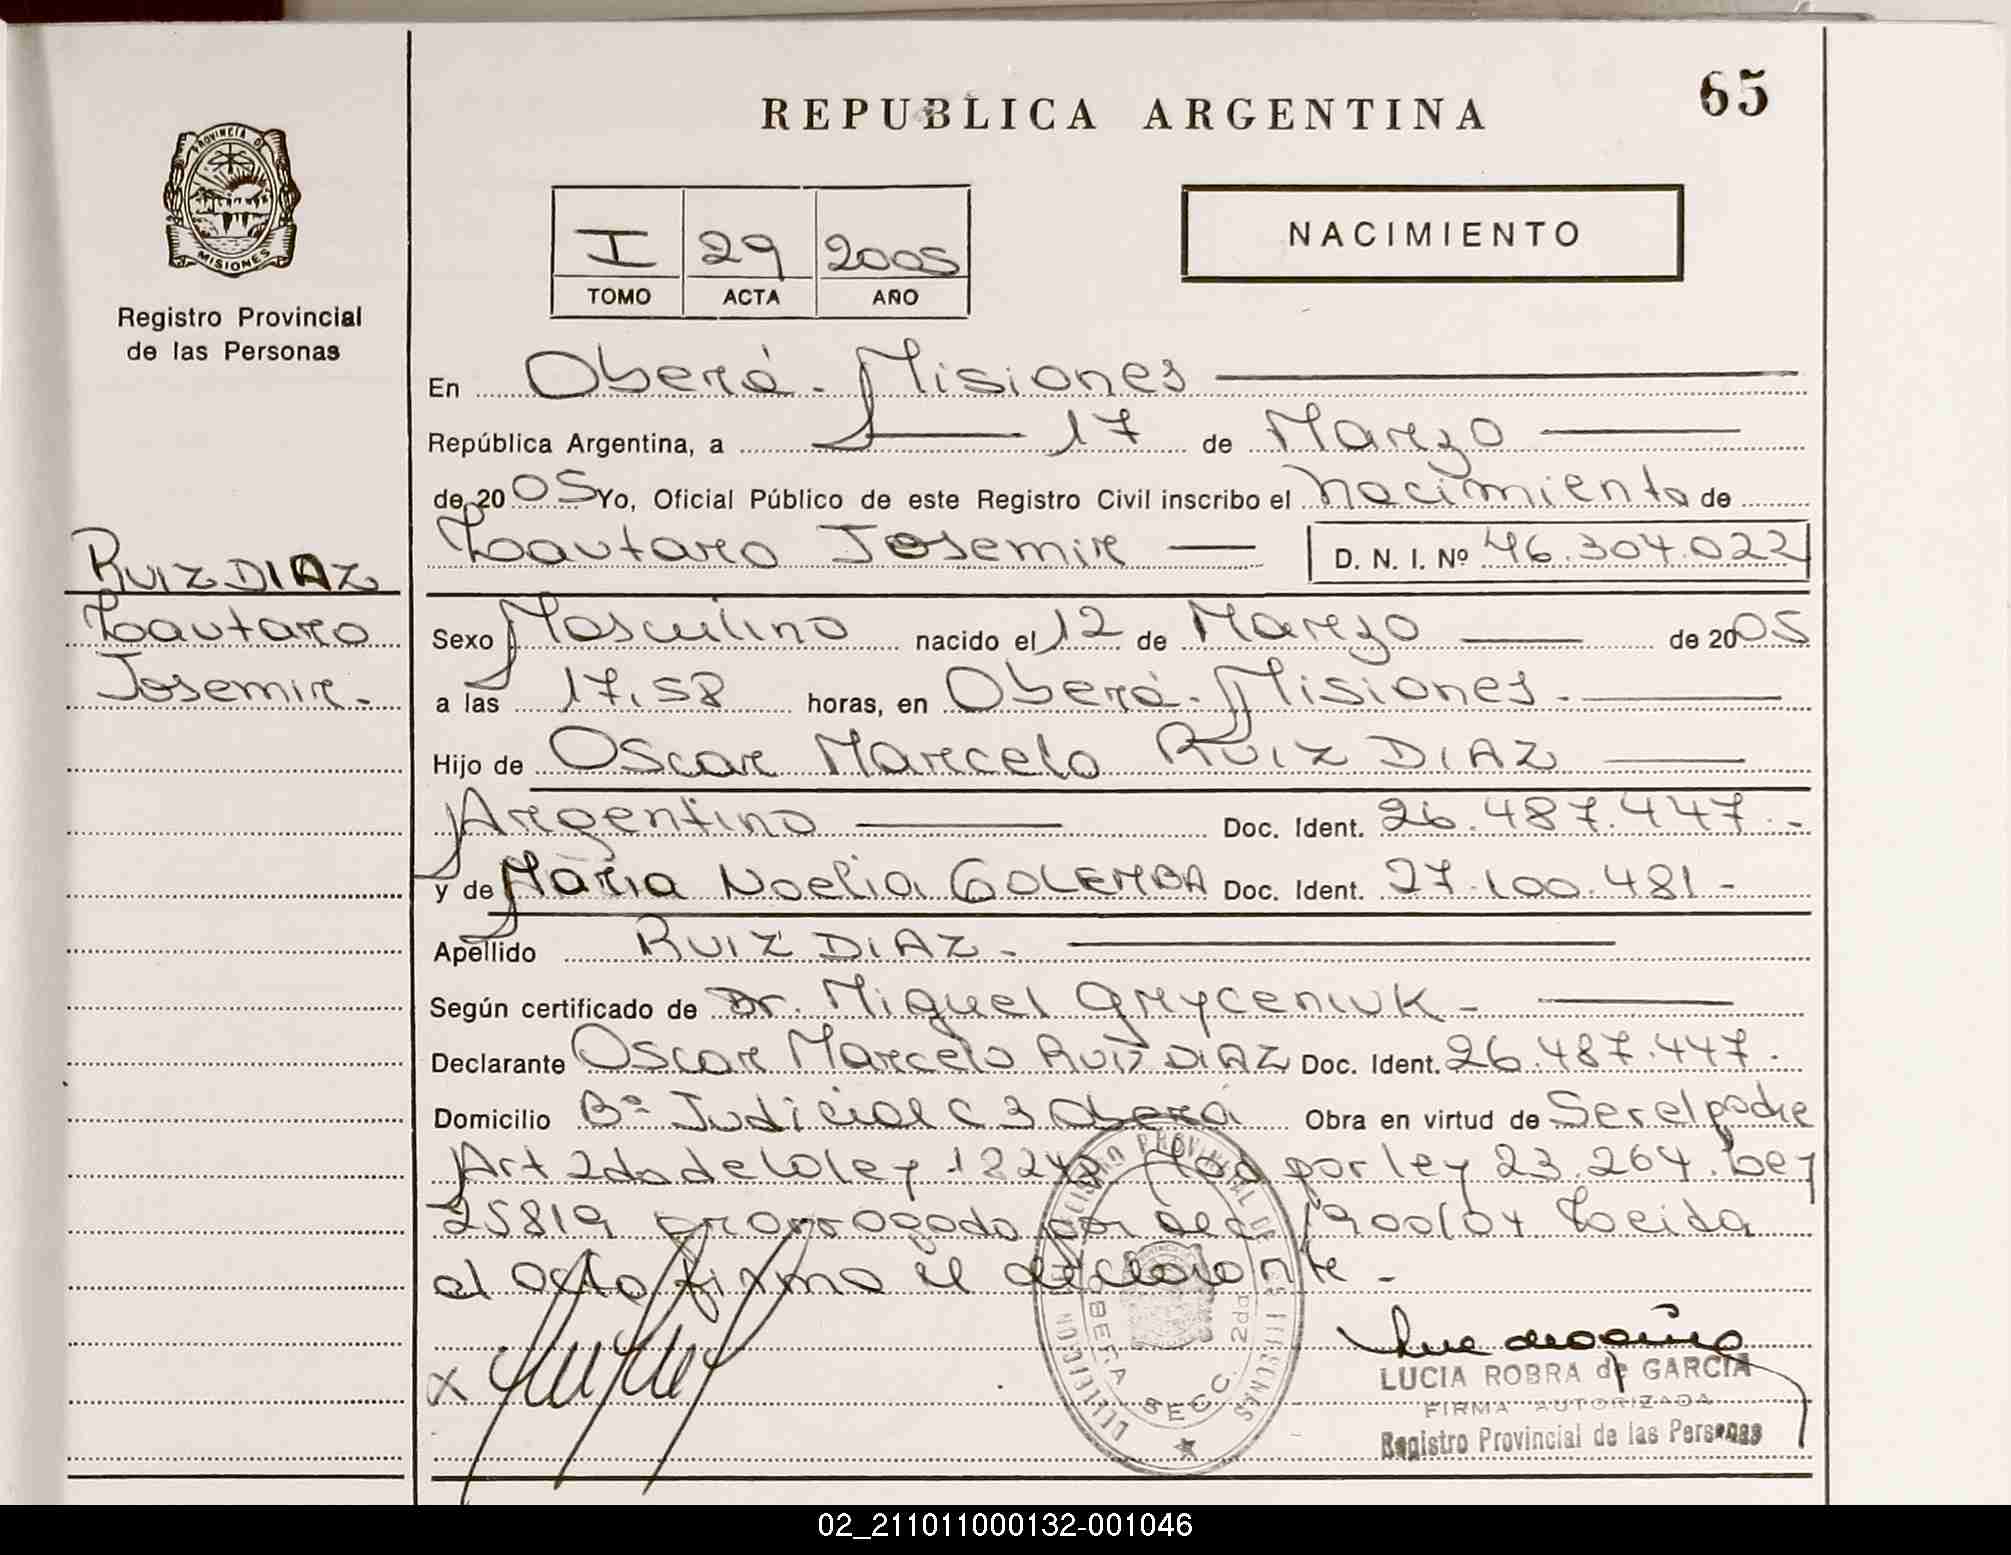 REPUBLICA ARGENTINA
65
PROVINCIA DE
MISIONES
Registro Provincial
de las Personas
I 29 2005
TOMO ACTA AÑO
NACIMIENTO
En Oberá - Misiones
República Argentina, a 17 de Marzo
de 2005 Yo, Oficial Público de este Registro Civil inscribo el nacimiento de
Lautaro Josemir D. N. I. Nº 46.304.022
RUIZ DIAZ
Lautaro
Josemir.-
Sexo Masculino nacido el 12 de Marzo de 2005
a las 17,58 horas, en Oberá - Misiones.
Hijo de Oscar Marcelo RUIZ DIAZ
Argentino Doc. Ident. 26.487.447.-
y de Maria Noelia GOLEMBA Doc. Ident. 27.100.481-
Apellido RUIZ DIAZ-
Según certificado de Dr. Miguel Gryceniuk-
Declarante Oscar Marcelo RUIZ DIAZ Doc. Ident. 26.487.447.
Domicilio Bº Judicial C 3 Oberá Obra en virtud de Ser el padre
Art 2do de la ley 18248 Mod por ley 23.264. Ley
25819 prorrogado por dec 1900/04 Leida
el acta firma el declarante-
X
DELEGACION DEL REGISTRO PROVINCIAL DE LAS PERSONAS
OBERA SECC. 2da
LUCIA ROBRA de GARCIA
FIRMA AUTORIZADA
Registro Provincial de las Personas
02_211011000132-001046